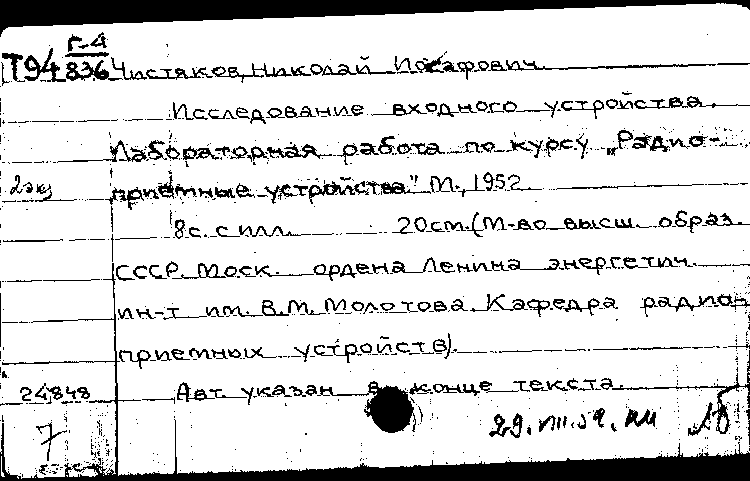 Г-4
Т94 836 Чистяков, Николай Иосафович.
Исследование входного устройства.
Лабораторная работа по курсу „Радио-
2 экз приемные устройства." М., 1952.
8с. с илл. 20см. (М-во высш. образ.
СССР. Моск. ордена Ленина энергетич.
ин-т им. В.М. Молотова. Кафедра радио-
приемных устройств).
24848 Авт. указан в конце текста.
29.VIII.59.
7